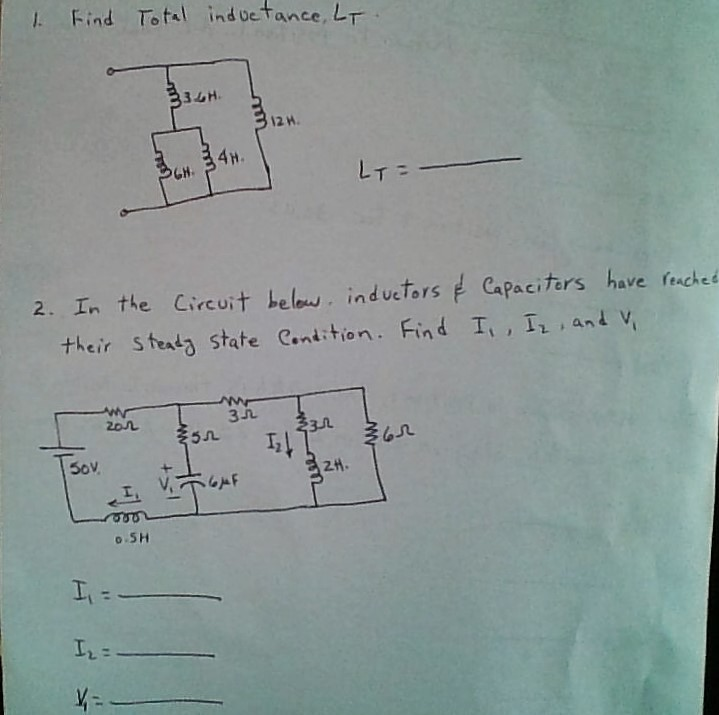 1. Find Total inductance, LT.
3.6H.
12H.
6H.
4H.
LT = 
2. In the Circuit below. inductors & Capacitors have reached
their Steady State Condition. Find I1, I2, and V1
20Ω
3Ω
5Ω
3Ω
6Ω
I2↓
50V.
+
V1
-
6μF
2H.
I1
0.5H
I1 =
I2 =
V1 =